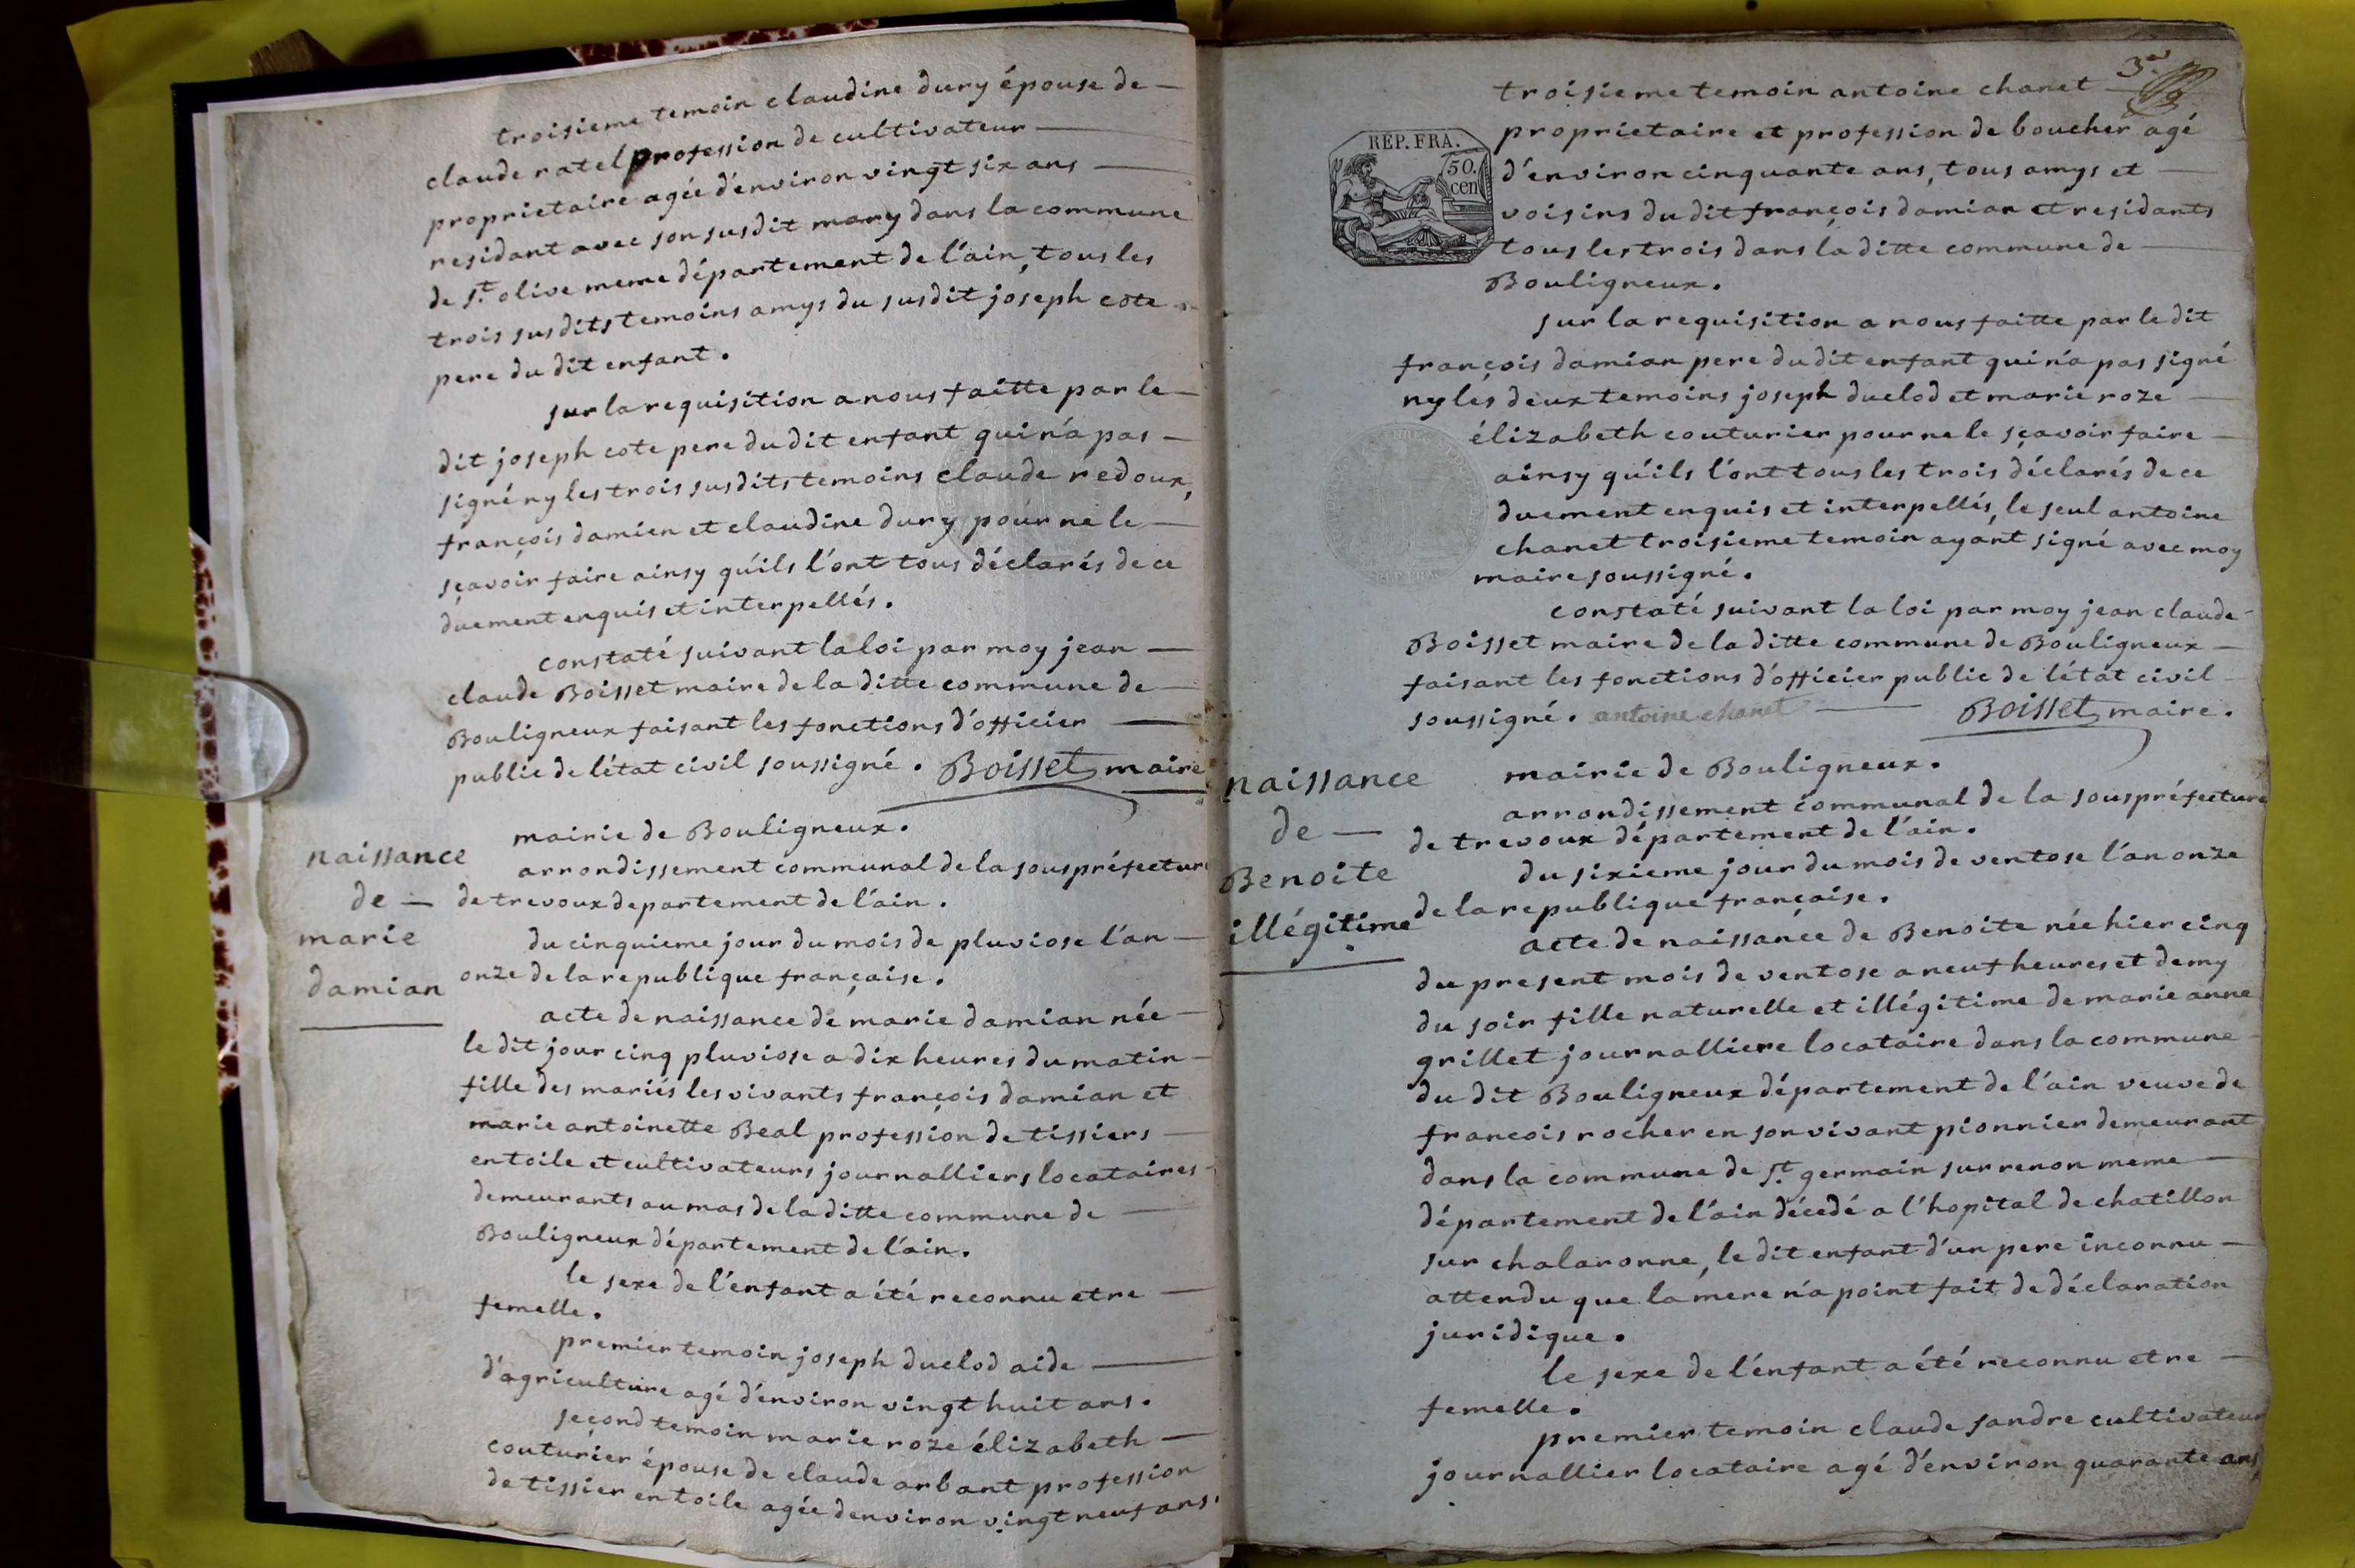 troisieme temoin claudine dury épouse de
claude ratel profession de cultivateur
proprietaire agée d'environ vingt six ans
residant avec son susdit mary dans la commune
de st. olive meme département de l'ain, tous les
trois susdits temoins amys du susdit joseph cote
pere du dit enfant.
sur la requisition a nous faitte par le
dit joseph cote pere du dit enfant qui n'a pas
signé ny les trois susdits temoins claude redoux,
françois damien et claudine dury pour ne le
sçavoir faire ainsy qu'ils l'ont tous déclarés de ce
duement enquis et interpellés.
constaté suivant la loi par moy jean
claude Boisset maire de la ditte commune de
Bouligneux faisant les fonctions d'officier
public de l'état civil soussigné. Boisset maire
naissance
de
marie
damian
mairie de Bouligneux.
arrondissement communal de la souspréfecture
de trevoux departement de l'ain.
du cinquieme jour du mois de pluviose l'an
onze de la republique française.
acte de naissance de marie damian née
le dit jour cinq pluviose a dix heures du matin
fille des mariés les vivants françois damian et
marie antoinette Beal profession de tissiers
en toile et cultivateurs journalliers locataires
demeurants au mas de la ditte commune de
Bouligneux département de l'ain.
le sexe de l'enfant a été reconnu etre
femelle.
premier temoin joseph duclod aide
d'agriculture agé d'environ vingt huit ans.
second temoin marie roze élizabeth
couturier épouse de claude arbant profession
de tissier en toile agée d'environ vingt neuf ans.
3e.
troisieme temoin antoine chanet
proprietaire et profession de boucher agé
d'environ cinquante ans, tous amys et
voisins du dit françois damian et residants
tous les trois dans la ditte commune de
Bouligneux.
REP. FRA.
50.
cen
sur la requisition a nous faitte par le dit
françois damian pere du dit enfant qui n'a pas signé
ny les deux temoins joseph duclod et marie roze
élizabeth couturier pour ne le sçavoir faire
ainsy qu'ils l'ont tous les trois déclarés de ce
duement enquis et interpellés, le seul antoine
chanet troisieme temoin ayant signé avec moy
maire soussigné.
constaté suivant la loi par moy jean claude
Boisset maire de la ditte commune de Bouligneux
faisant les fonctions d'officier public de l'état civil
soussigné. antoine chanet Boisset maire.
naissance
de
Benoite
illégitime
mairie de Bouligneux.
arrondissement communal de la souspréfecture
de trevoux département de l'ain.
du sixieme jour du mois de ventose l'an onze
de la republique française.
acte de naissance de Benoite née hier cinq
du present mois de ventose a neuf heures et demy
du soir fille naturelle et illégitime de marie anne
grillet journalliere locataire dans la commune
du dit Bouligneux département de l'ain veuve de
francois rocher en son vivant pionnier demeurant
dans la commune de st. germain sur renon meme
département de l'ain décedé a l'hopital de chatillon
sur chalaronne, le dit enfant d'un pere inconnu
attendu que la mere n'a point fait de déclaration
juridique.
le sexe de l'enfant a été reconnu etre
femelle.
premier temoin claude sandre cultivateur
journallier locataire agé d'environ quarante ans,